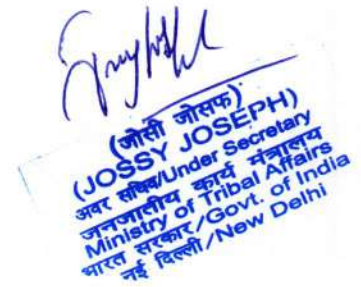 (जोसी जोसफ)
(JOSSY JOSEPH)
अवर सचिव/Under Secretary
जनजातीय कार्य मंत्रालय
Ministry of Tribal Affairs
भारत सरकार/Govt. of India
नई दिल्ली/New Delhi